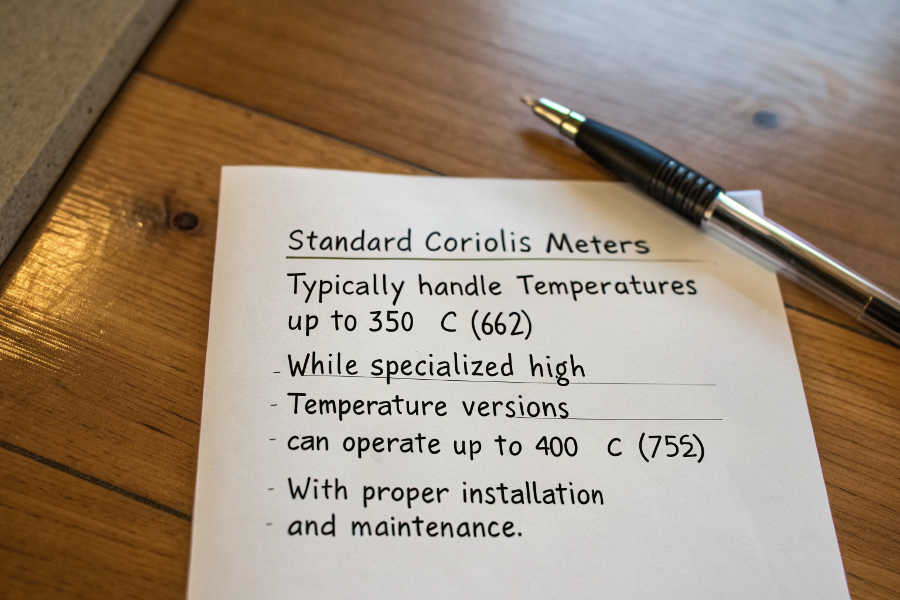 Standard Coriolis Meters
Typically handle Temperatures
up to 350 C (662)
- While specialized high
- Temperature versions
- can operate up to 400 C (755)
- With proper installation
- and maintenance.